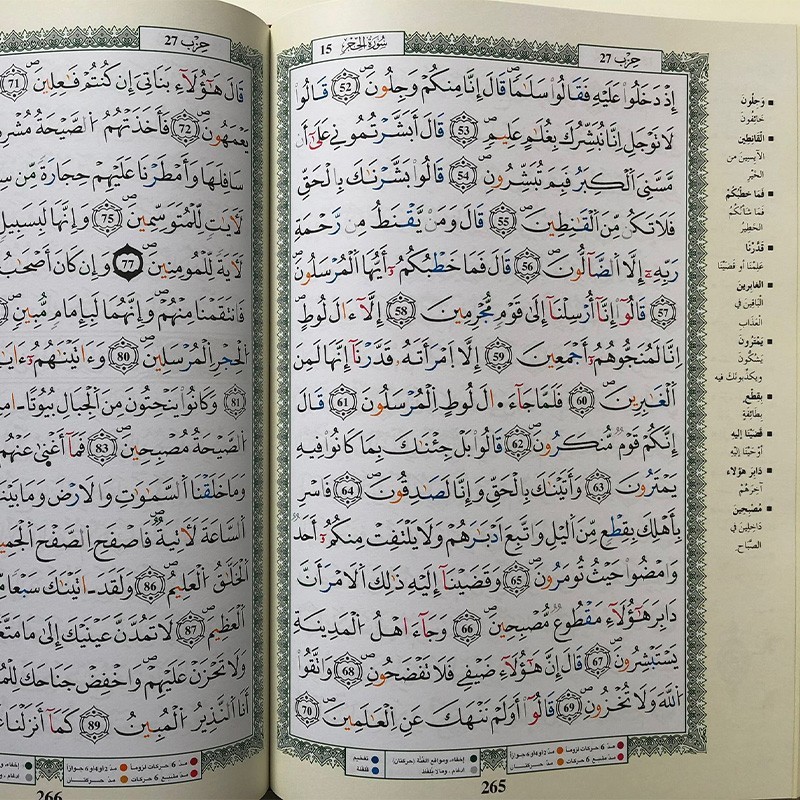 سُورَةُ الحِجْرِ 15
حِزْب 27
إِذْ دَخَلُوا عَلَيْهِ فَقَالُوا سَلَٰمًا قَالَ إِنَّا مِنكُمْ وَجِلُونَ 52 قَالُوا
لَا تَوْجَلْ إِنَّا نُبَشِّرُكَ بِغُلَٰمٍ عَلِيمٍ 53 قَالَ أَبَشَّرْتُمُونِي عَلَىٰ أَن
مَّسَّنِيَ الْكِبَرُ فَبِمَ تُبَشِّرُونِ 54 قَالُوا بَشَّرْنَٰكَ بِالْحَقِّ
فَلَا تَكُن مِّنَ الْقَٰنِطِينَ 55 قَالَ وَمَنْ يَّقْنَطُ مِن رَّحْمَةِ
رَبِّهِ إِلَّا الضَّآلُّونَ 56 قَالَ فَمَا خَطْبُكُمْ أَيُّهَا الْمُرْسَلُونَ
57 قَالُوا إِنَّا أُرْسِلْنَا إِلَىٰ قَوْمٍ مُّجْرِمِينَ 58 إِلَّا ءَالَ لُوطٍ
اِنَّا لَمُنَجُّوهُمُ أَجْمَعِينَ 59 إِلَّا اَمْرَأَتَهُ قَدَّرْنَا إِنَّهَا لَمِنَ
الْغَٰبِرِينَ 60 فَلَمَّا جَآءَ ءَالَ لُوطٍ الْمُرْسَلُونَ 61 قَالَ
إِنَّكُمْ قَوْمٌ مُّنكَرُونَ 62 قَالُوا بَلْ جِئْنَٰكَ بِمَا كَانُوا فِيهِ
يَمْتَرُونَ 63 وَأَتَيْنَٰكَ بِالْحَقِّ وَإِنَّا لَصَٰدِقُونَ 64 فَاسْرِ
بِأَهْلِكَ بِقِطْعٍ مِّنَ اَلَيْلِ وَاتَّبِعَ اَدْبَٰرَهُمْ وَلَا يَلْتَفِتْ مِنكُمُ أَحَدٌ
وَامْضُوا حَيْثُ تُومَرُونَ 65 وَقَضَيْنَا إِلَيْهِ ذَٰلِكَ اَلَامْرَ أَنَّ
دَابِرَ هَٰٓؤُلَآءِ مَقْطُوعٌ مُّصْبِحِينَ 66 وَجَآءَ اهْلُ الْمَدِينَةِ
يَسْتَبْشِرُونَ 67 قَالَ إِنَّ هَٰٓؤُلَآءِ ضَيْفِي فَلَا تَفْضَحُونِ 68 وَاتَّقُوا
اللَّهَ وَلَا تُخْزُونِ 69 قَالُوا أَوَلَمْ نَنْهَكَ عَنِ الْعَٰلَمِينَ 70
وَجِلُونَ
خَائِفُونَ
الْقَانِطِينَ
الآيِسِينَ مِنَ
الْخَيْرِ
فَمَا خَطْبُكُمْ
فَمَا شَأْنُكُمُ
الخَطِيرُ
قَدَّرْنَا
عَلِمْنَا أَوْ قَضَيْنَا
الغابِرِينَ
الْبَاقِينَ فِي
الْعَذَابِ
يَمْتَرُونَ
يَشُكُّونَ
ويكذّبونك فيه
بِقِطْعٍ
بِطَائِفَةٍ
قَضَيْنَا إِلَيْهِ
أَوْحَيْنَا إِلَيْهِ
دَابِرَ هَؤُلَاءِ
آخِرَهُمْ
مُصْبِحِينَ
دَاخِلِينَ فِي
الصَّبَاحِ.
مدّ 6 حركات لزوماً
مدّ 2 أو 4 أو 6 جوازاً
مدّ مشبع 6 حركات
مدّ حركتان
إخفاء، ومواقع الغُنَّة (حركتان)
إدغام، وما لا يُلفَظ
تفخيم
قلقلة
265
حِزْب 27
قَالَ هَٰٓؤُلَآءِ بَنَاتِيَ إِن كُنتُمْ فَٰعِلِينَ 71
يَعْمَهُونَ 72 فَأَخَذَتْهُمُ الصَّيْحَةُ
سَافِلَهَا وَأَمْطَرْنَا عَلَيْهِمْ حِجَارَةً مِّن
لَأٓيَٰتٍ لِّلْمُتَوَسِّمِينَ 75 وَإِنَّهَا لَبِسَبِيلٍ
لَأٓيَةً لِّلْمُومِنِينَ 77 وَإِن كَانَ أَصْحَٰبُ
فَانتَقَمْنَا مِنْهُمْ وَإِنَّهُمَا لَبِإِمَامٍ مُّبِينٍ
الْحِجْرِ الْمُرْسَلِينَ 80 وَءَاتَيْنَٰهُمُ
81 وَكَانُوا يَنْحِتُونَ مِنَ الْجِبَالِ بُيُوتًا
الصَّيْحَةُ مُصْبِحِينَ 83 فَمَا أَغْنَىٰ عَنْهُم
وَمَا خَلَقْنَا السَّمَٰوَٰتِ وَالَارْضَ وَمَا
السَّاعَةَ لَأٓتِيَةٌ فَاصْفَحِ الصَّفْحَ
الْخَلَّٰقُ الْعَلِيمُ 86 وَلَقَدَ اٰتَيْنَٰكَ سَبْعًا
الْعَظِيمَ 87 لَا تَمُدَّنَّ عَيْنَيْكَ إِلَىٰ مَا
وَلَا تَحْزَنْ عَلَيْهِمْ وَاخْفِضْ جَنَاحَكَ
أَنَا النَّذِيرُ الْمُبِينُ 89 كَمَا أَنزَلْنَا
مدّ 6 حركات لزوماً
مدّ 2 أو 4 أو 6 جوازاً
مدّ مشبع 6 حركات
مدّ حركتان
266